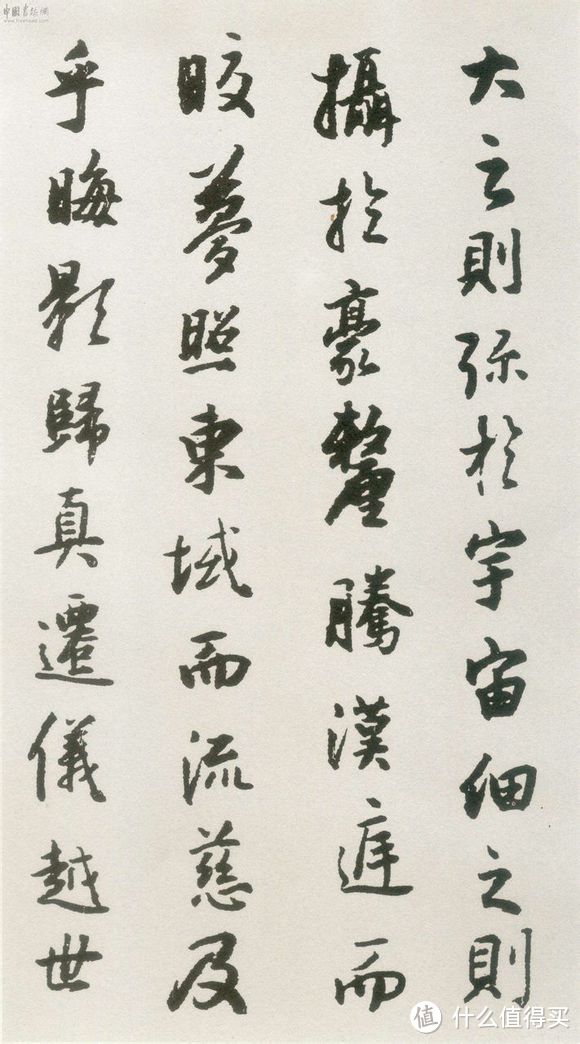 大之則弥於宇宙細之則
攝於豪釐騰漢庭而
晈夢照東域而流慈及
乎晦影歸真遷儀越世
值 什么值得买